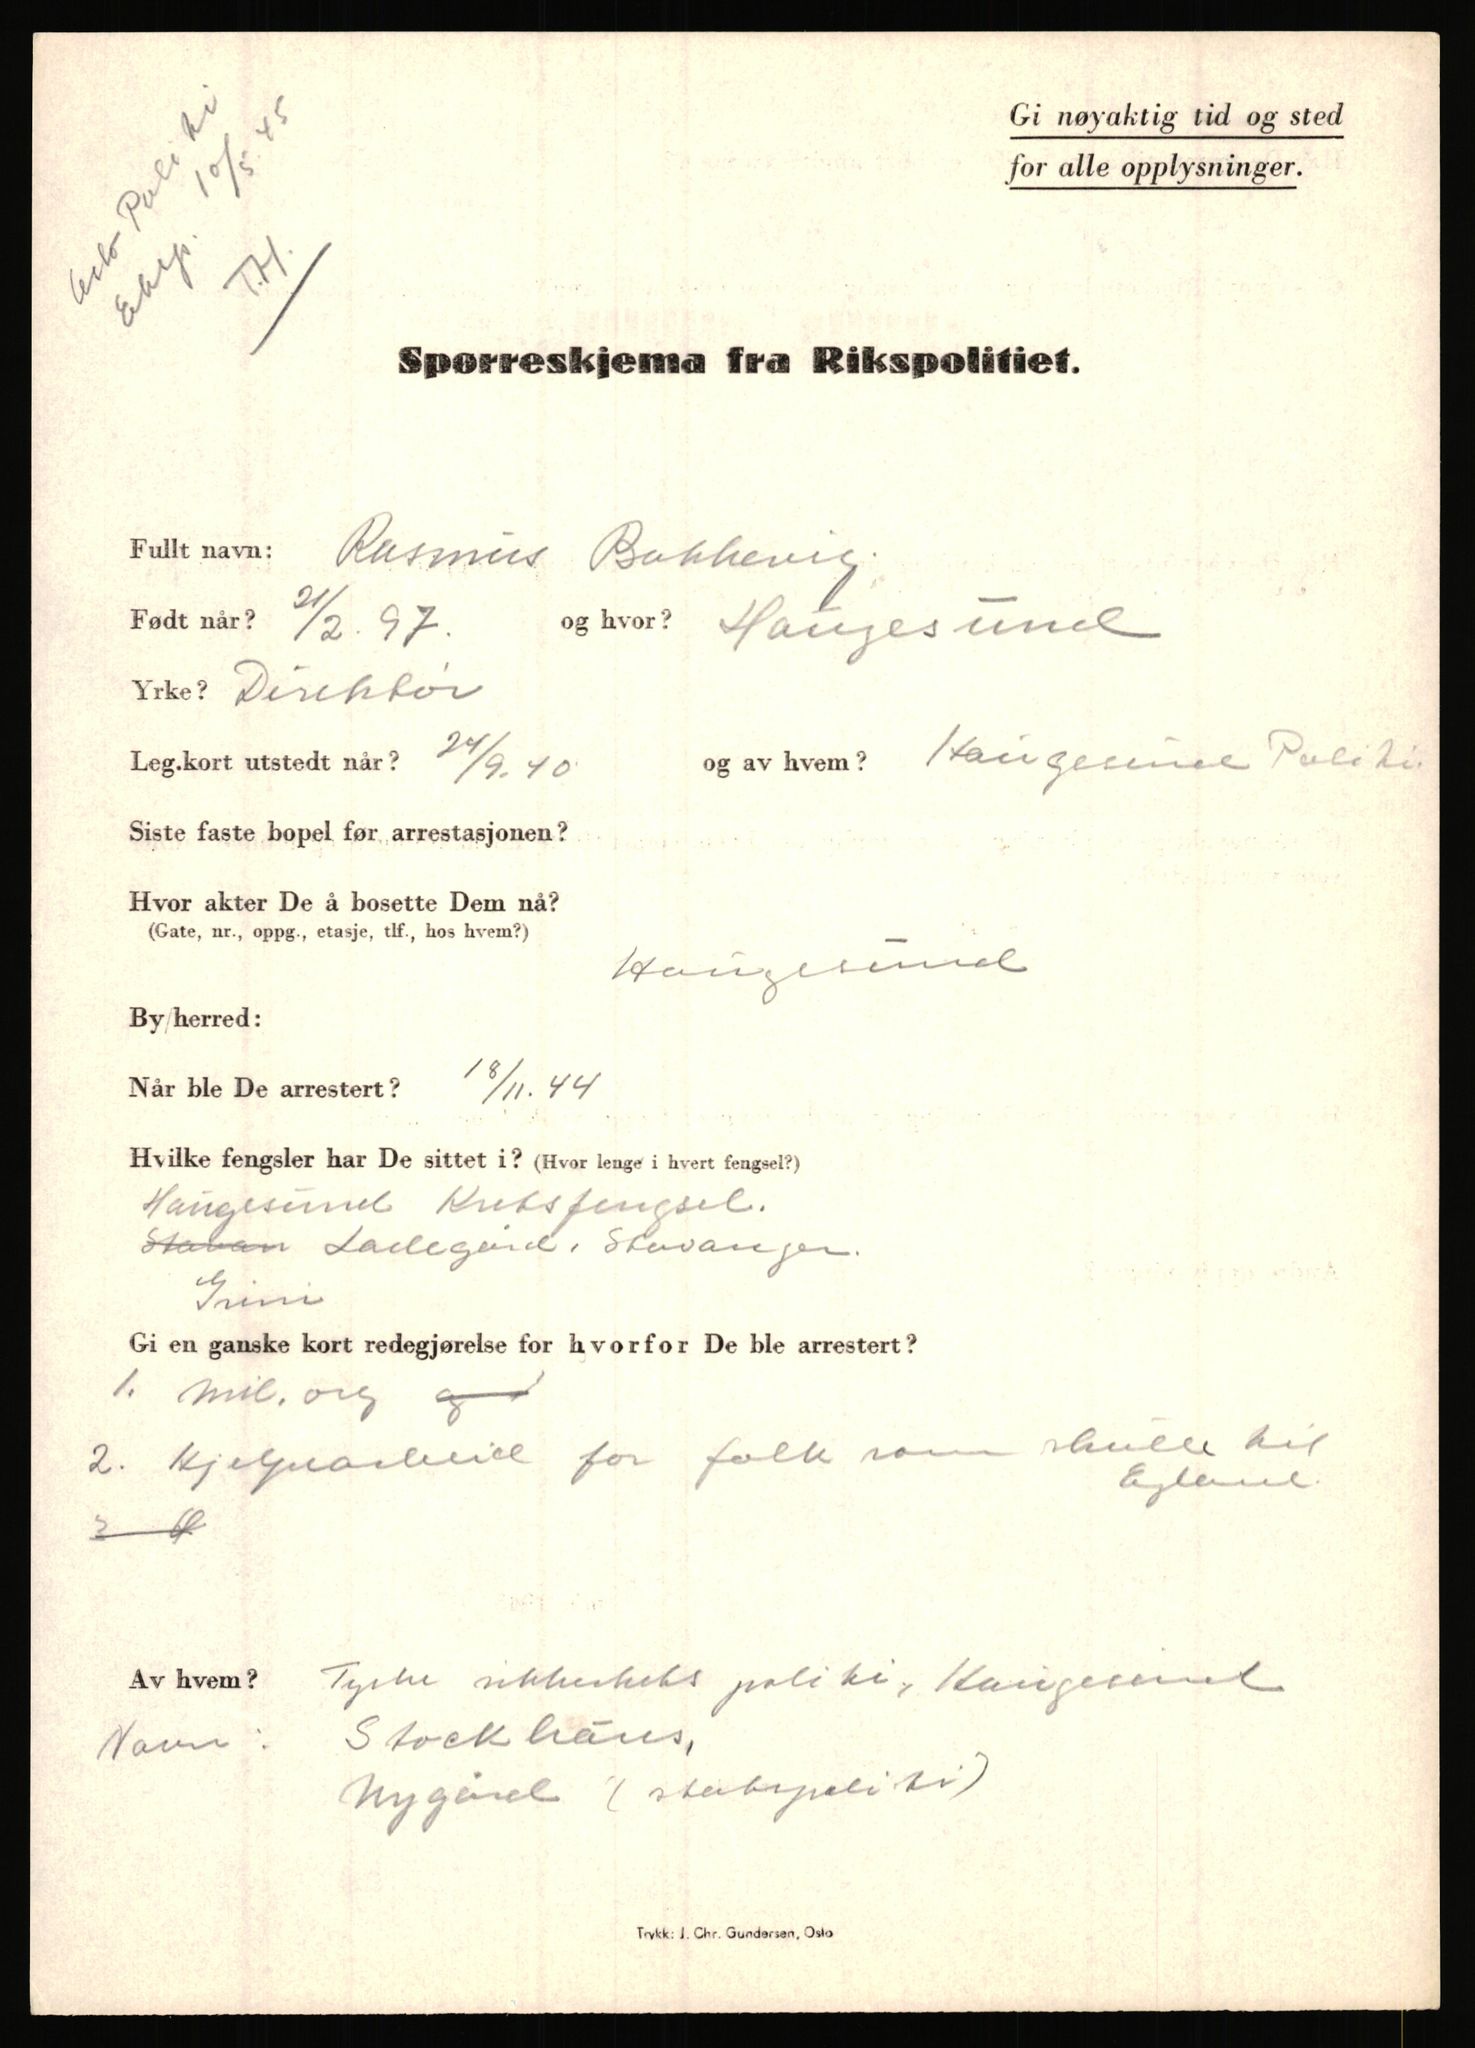 Oslo Politi
Eksp. 10/5 45
T.H.
Gi nøyaktig tid og sted
for alle opplysninger.
Spørreskjema fra Rikspolitiet.
Fullt navn: Rasmus Bakkevig.
Født når? 21/2. 97. og hvor? Haugesund
Yrke? Direktør
Leg.kort utstedt når? 24/9. 40 og av hvem? Haugesund Politi.
Siste faste bopel før arrestasjonen?
Hvor akter De å bosette Dem nå?
(Gate, nr., oppg., etasje, tlf., hos hvem?)
Haugesund
By/herred:
Når ble De arrestert? 18/11. 44
Hvilke fengsler har De sittet i? (Hvor lenge i hvert fengsel?)
Haugesund Kretsfengsel.
Stavan Ladegård, Stavanger.
Grini
Gi en ganske kort redegjørelse for hvorfor De ble arrestert?
1. Mil. org og
2. Hjelpearbeid for folk som skulle til
England.
3
Av hvem? Tyske sikkerhets politi, Haugesund
Navn: Stockhaus,
Nygård (statspoliti)
Trykk: J. Chr. Gundersen, Oslo